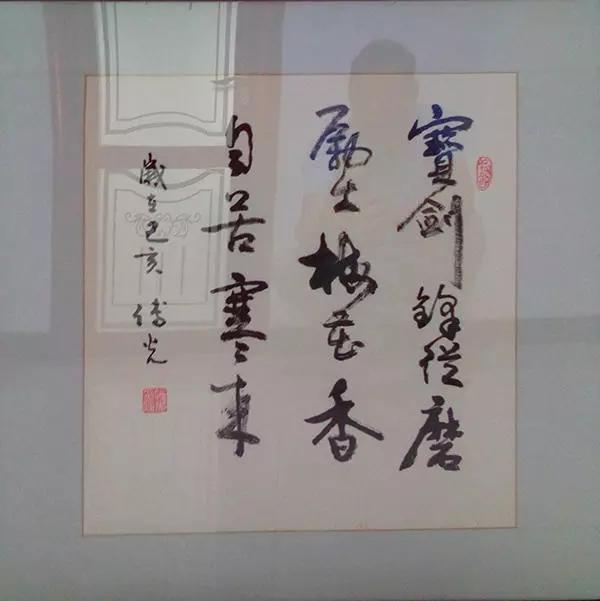 寶劍鋒從磨
勵出梅花香
自苦寒來
歲在己亥 傳光